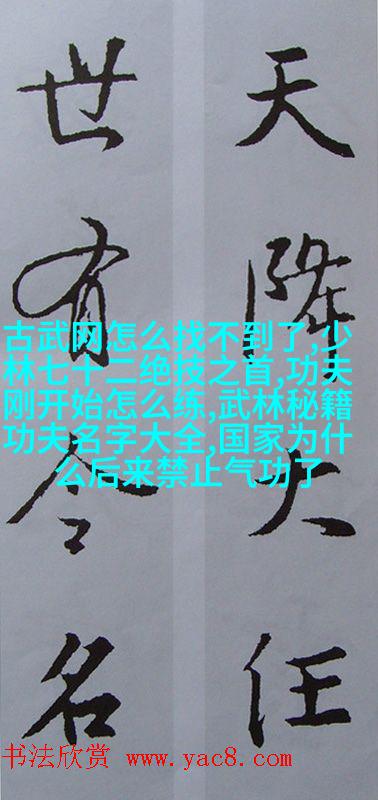 天降大任
世有令名
古武网怎么找不到了,少
林七十二绝技之首,功夫
刚开始怎么练,武林秘籍
功夫名字大全,国家为什
么后来禁止气功了
书法欣赏 www.yac8.com